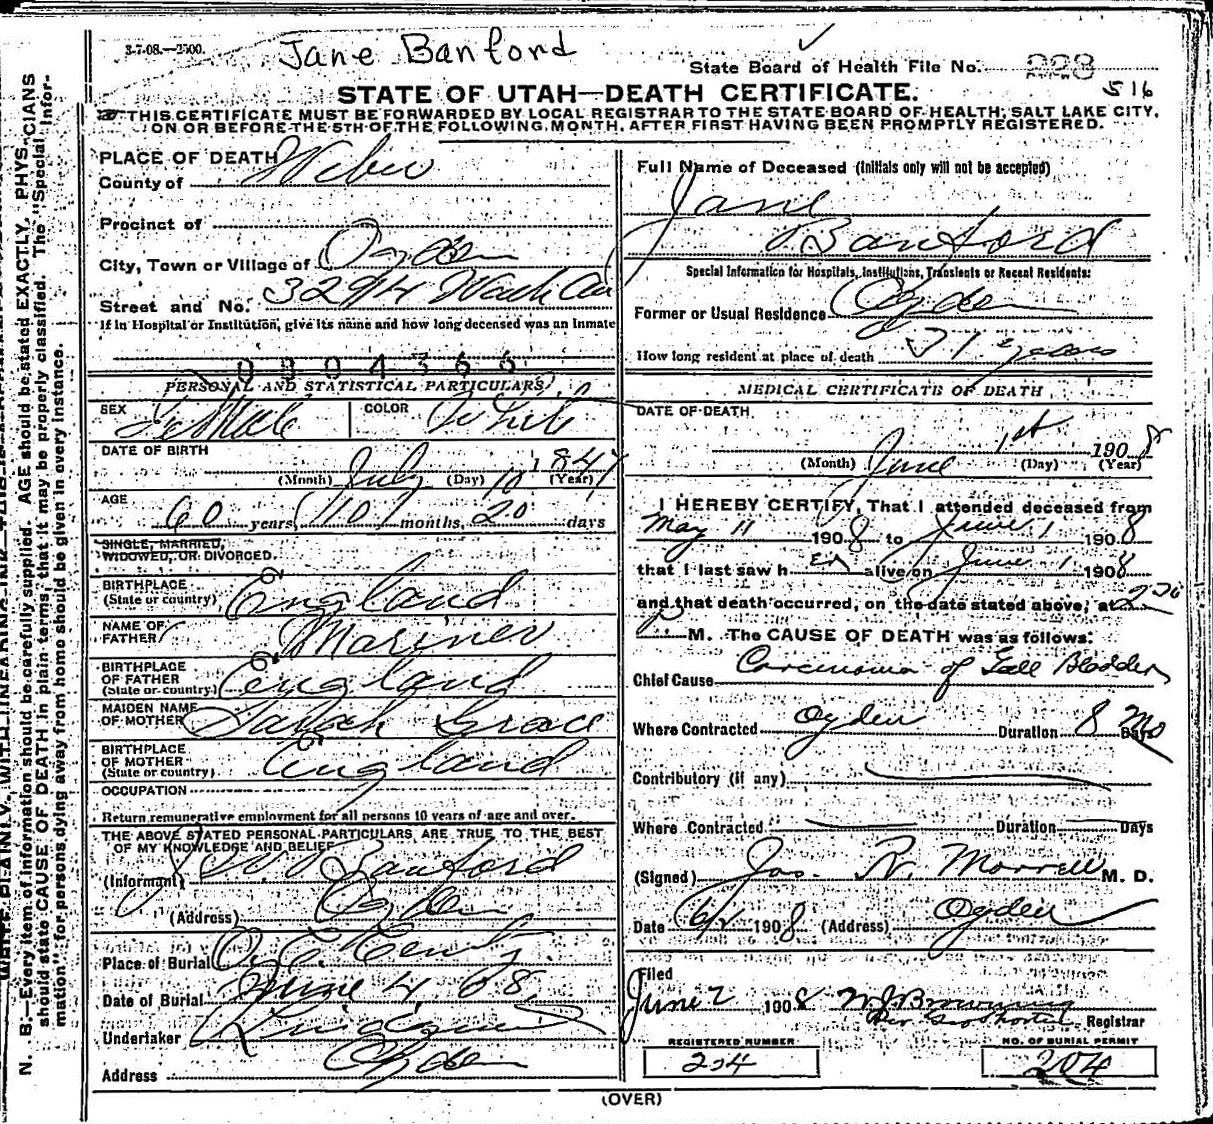 3-7-08.—2500.
Jane Banford
State Board of Health File No. 223
516
STATE OF UTAH—DEATH CERTIFICATE.
THIS CERTIFICATE MUST BE FORWARDED BY LOCAL REGISTRAR TO THE STATE BOARD OF HEALTH, SALT LAKE CITY,
ON OR BEFORE THE 5TH OF THE FOLLOWING MONTH, AFTER FIRST HAVING BEEN PROMPTLY REGISTERED.
PLACE OF DEATH
County of Weber
Precinct of
City, Town or Village of Ogden
Street and No. 3294 Wash Av
If in Hospital or Institution, give its name and how long deceased was an inmate
0804366
PERSONAL AND STATISTICAL PARTICULARS
SEX Female COLOR White
DATE OF BIRTH
(Month) July (Day) 10 1847 (Year)
AGE
60 years, 10 months, 20 days
SINGLE, MARRIED,
WIDOWED, OR DIVORCED.
BIRTHPLACE
(State or country) England
NAME OF
FATHER Mariner
BIRTHPLACE
OF FATHER
(State or country) England
MAIDEN NAME
OF MOTHER Sarah Grace
BIRTHPLACE
OF MOTHER
(State or country) England
OCCUPATION
Return remunerative employment for all persons 10 years of age and over.
THE ABOVE STATED PERSONAL PARTICULARS ARE TRUE TO THE BEST
OF MY KNOWLEDGE AND BELIEF
(Informant) W Banford
(Address) Ogden
Place of Burial
Date of Burial June 4, 08
Undertaker
Address Ogden
Full Name of Deceased (Initials only will not be accepted)
Jane
Banford
Special Information for Hospitals, Institutions, Transients or Recent Residents:
Former or Usual Residence Ogden
How long resident at place of death years
MEDICAL CERTIFICATE OF DEATH
DATE OF DEATH
(Month) June 1st (Day) 1908 (Year)
I HEREBY CERTIFY, That I attended deceased from
May 11 1908 to June 1 1908
that I last saw h er alive on June 1 1908
and that death occurred, on the date stated above, at
P M. The CAUSE OF DEATH was as follows:
Chief Cause Carcinoma of Gall Bladder
Where Contracted Ogden Duration 8 Mo Days
Contributory (if any)
Where Contracted Duration Days
(Signed) Jas. R. Morrell M. D.
Date 6/1 1908 (Address) Ogden
Filed
June 2 1908 W J Browning
Registrar
REGISTERED NUMBER
204
NO. OF BURIAL PERMIT
204
(OVER)
N. B.—Every item of information should be carefully supplied. AGE should be stated EXACTLY. PHYSICIANS
should state CAUSE OF DEATH in plain terms, that it may be properly classified. The "Special Infor-
mation" for persons dying away from home should be given in every instance.